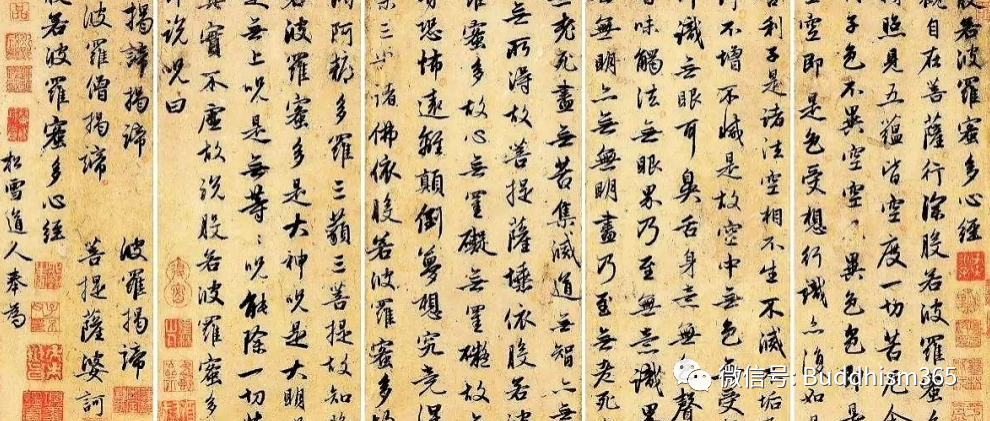 般若波羅蜜多心經
觀自在菩薩行深般若波羅蜜多
時照見五蘊皆空度一切苦厄舍
子色不異空空〻異色色即是
空即是色受想行識亦復如是
利子是諸法空相不生不滅垢
不增不減是故空中無色無受
識無眼耳鼻舌身意無聲
香味觸法無眼界乃至無意識界
無無明亦無無明盡乃至無老死
無老死盡無苦集滅道無智亦無
無所得故菩提薩埵依般若波
羅蜜多故心無罣礙無罣礙故
恐怖遠離顛倒夢想究竟涅
槃三世諸佛依般若波羅蜜多故
得阿耨多羅三藐三菩提故知般
若波羅蜜多是大神呪是大明
是無上呪是無等〻呪能除一切苦
真實不虛故說般若波羅蜜多
即說呪曰
揭諦揭諦 波羅揭諦
波羅僧揭諦 菩提薩婆訶
般若波羅蜜多心經
松雪道人奉為
微信号: Buddhism365